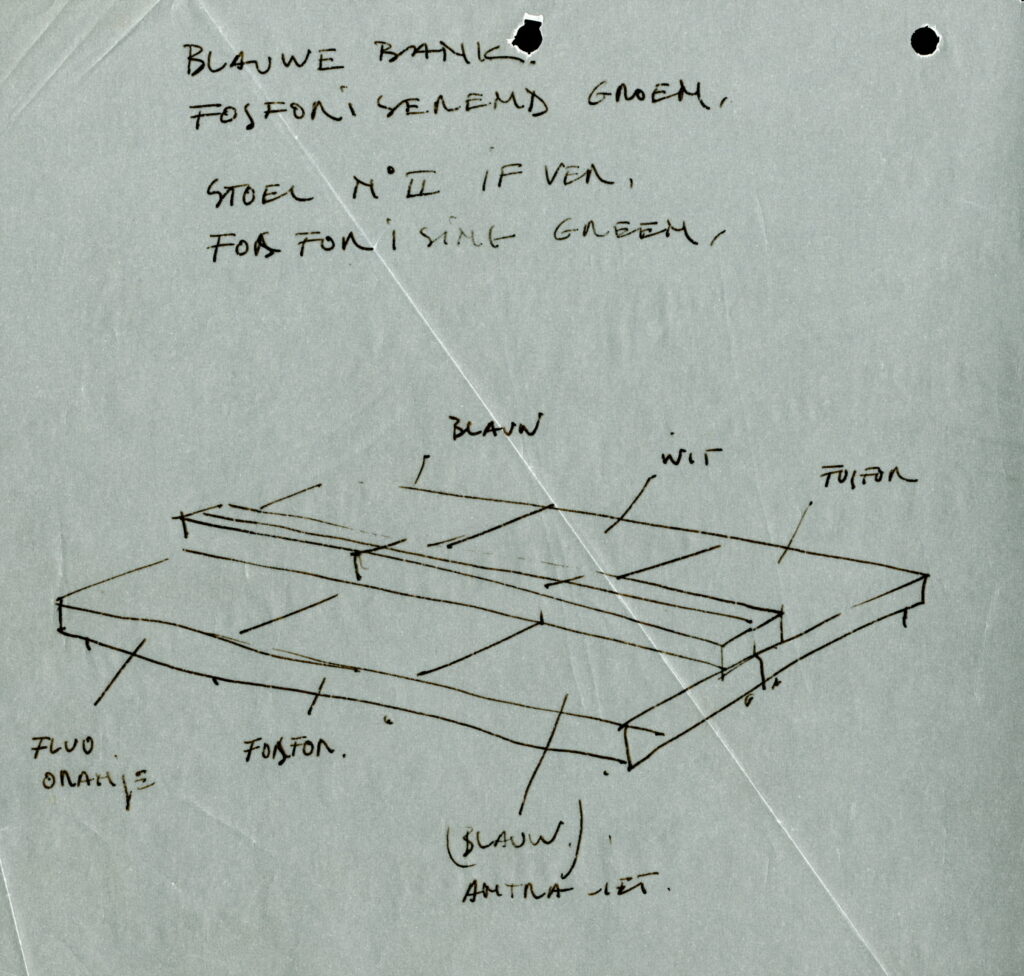 BLAUWE BANK.
FOSFORISEREND GROEN,
STOEL N° II IF VER,
FOSFORISING GREEN,
BLAUW
WIT
FOSFOR
FLUO
ORANJE
FOSFOR.
(BLAUW.)
ANTRA-IET.